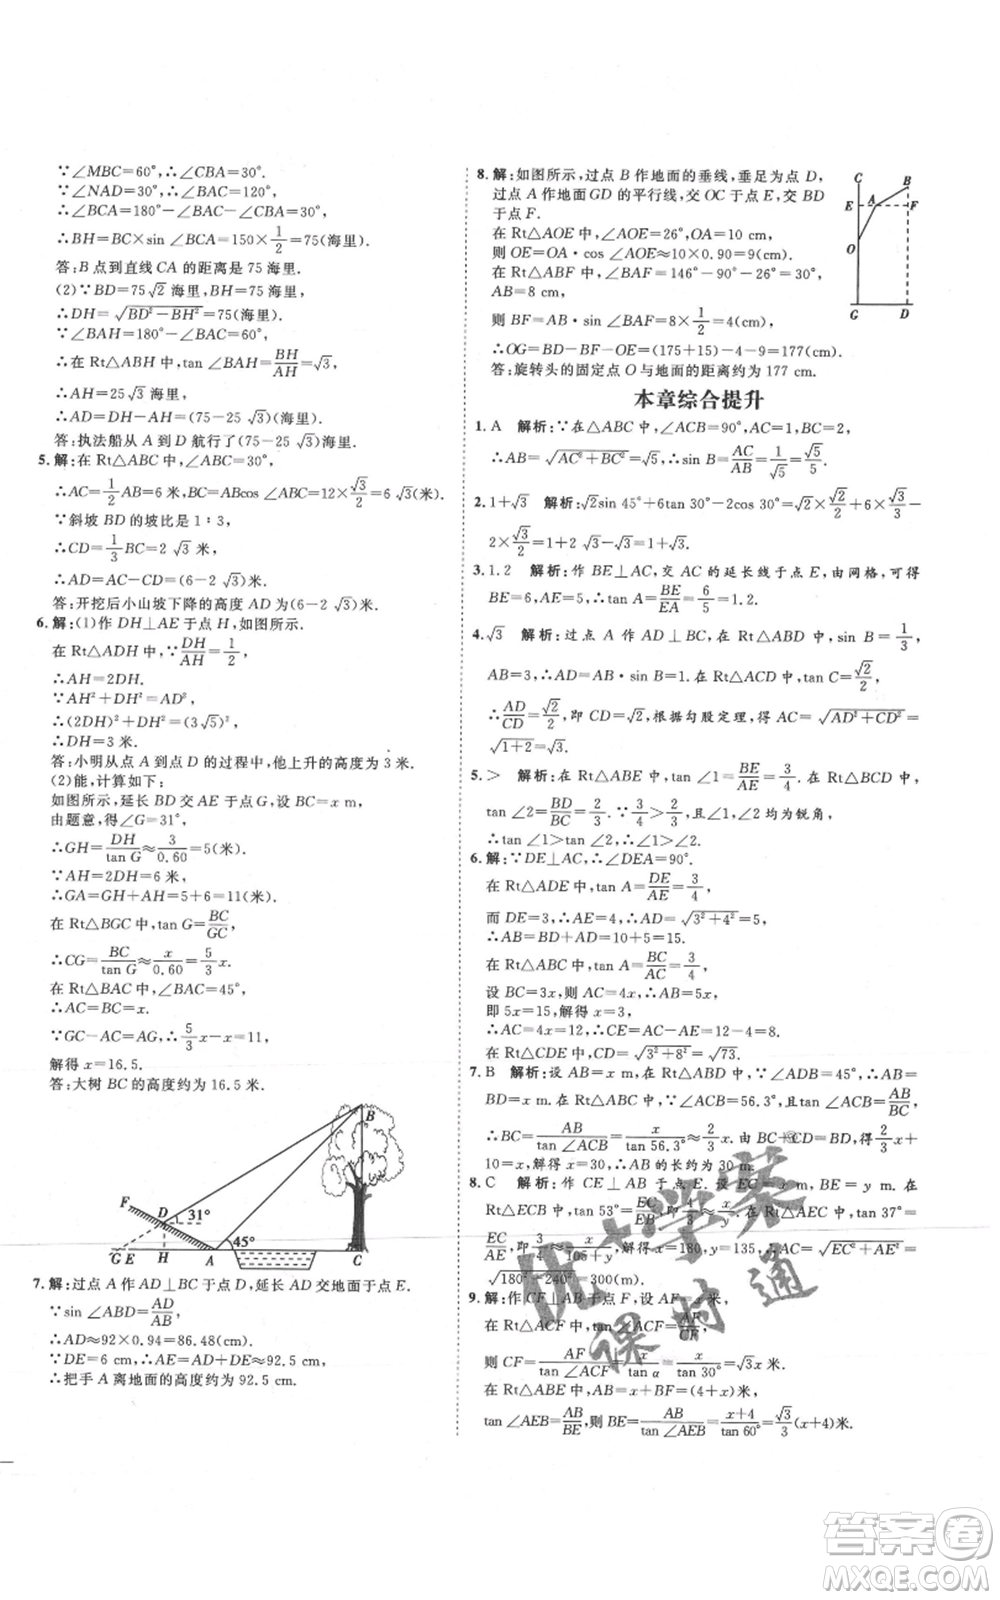 ∵∠MBC=60°,∴∠CBA=30°.
∵∠NAD=30°,∴∠BAC=120°.
∴∠BCA=180°-∠BAC-∠CBA=30°.
∴BH=BC×sin ∠BCA=150×1/2=75(海里).
答:B 点到直线 CA 的距离是 75 海里.
(2)∵BD=75√2 海里,BH=75 海里,
∴DH=√(BD²-BH²)=75(海里).
∵∠BAH=180°-∠BAC=60°,
∴在 Rt△ABH 中,tan ∠BAH=BH/AH=√3,
∴AH=25√3 海里.
∴AD=DH-AH=(75-25√3)(海里).
答:执法船从 A 到 D 航行了(75-25√3)海里.
5.解:在 Rt△ABC 中,∠ABC=30°,
∴AC=1/2AB=6 米,BC=ABcos ∠ABC=12×√3/2=6√3(米).
∵斜坡 BD 的坡比是 1∶3,
∴CD=1/3BC=2√3 米,
∴AD=AC-CD=(6-2√3)米.
答:开挖后小山坡下降的高度 AD 为(6-2√3)米.
6.解:(1)作 DH⊥AE 于点 H,如图所示.
在 Rt△ADH 中,∵DH/AH=1/2,
∴AH=2DH.
∵AH²+DH²=AD²,
∴(2DH)²+DH²=(3√5)²,
∴DH=3 米.
答:小明从点 A 到点 D 的过程中,他上升的高度为 3 米.
(2)能,计算如下:
如图所示,延长 BD 交 AE 于点 G,设 BC=x m,
由题意,得∠G=31°,
∴GH=DH/tan G≈3/0.60=5(米).
∵AH=2DH=6 米,
∴GA=GH+AH=5+6=11(米).
在 Rt△BGC 中,tan G=BC/GC,
∴CG=BC/tan G≈x/0.60=5/3x.
在 Rt△BAC 中,∠BAC=45°,
∴AC=BC=x.
∵GC-AC=AG,∴5/3x-x=11,
解得 x=16.5.
答:大树 BC 的高度约为 16.5 米.
B
F
D
31°
45°
G E H A C
7.解:过点 A 作 AD⊥BC 于点 D,延长 AD 交地面于点 E.
∵sin ∠ABD=AD/AB,
∴AD≈92×0.94=86.48(cm).
∵DE=6 cm,∴AE=AD+DE≈92.5(cm).
∴把手 A 离地面的高度约为 92.5 cm.
8.解:如图所示,过点 B 作地面的垂线,垂足为点 D,
过点 A 作地面 GD 的平行线,交 OC 于点 E,交 BD
于点 F.
在 Rt△AOE 中,∠AOE=26°,OA=10 cm,
则 OE=OA·cos ∠AOE≈10×0.90=9(cm).
在 Rt△ABF 中,∠BAF=146°-90°-26°=30°,
AB=8 cm,
则 BF=AB·sin ∠BAF=8×1/2=4(cm),
∴OG=BD-BF-OE≈(175+15)-4-9=177(cm).
答:旋转头的固定点 O 与地面的距离约为 177 cm.
C B
E A F
O
G D
本章综合提升
1.A 解析:∵在△ABC 中,∠ACB=90°,AC=1,BC=2,
∴AB=√(AC²+BC²)=√5,∴sin B=AC/AB=1/√5=√5/5.
2.1+√3 解析:√2sin 45°+6tan 30°-2cos 30°=√2×√2/2+6×√3/3-
2×√3/2=1+2√3-√3=1+√3.
3.1.2 解析:作 BE⊥AC,交 AC 的延长线于点 E,由网格,可得
BE=6,AE=5,∴tan A=BE/EA=6/5=1.2.
4.√3 解析:过点 A 作 AD⊥BC,在 Rt△ABD 中,sin B=1/3,
AB=3,∴AD=AB·sin B=1.在 Rt△ACD 中,tan C=√2/2,
∴AD/CD=√2/2,即 CD=√2,根据勾股定理,得 AC=√(AD²+CD²)=
√(1+2)=√3.
5.> 解析:在 Rt△ABE 中,tan ∠1=BE/AE=3/4.在 Rt△BCD 中,
tan ∠2=BD/BC=2/3.∵3/4>2/3,且∠1,∠2 均为锐角,
∴tan ∠1>tan ∠2,∴∠1>∠2.
6.解:∵DE⊥AC,∴∠DEA=90°.
在 Rt△ADE 中,tan A=DE/AE=3/4,
而 DE=3,∴AE=4,∴AD=√(3²+4²)=5,
∴AB=AD+BD=10+5=15.
在 Rt△ABC 中,∵tan A=BC/AC=3/4,
设 BC=3x,则 AC=4x,∴AB=5x,
即 5x=15,解得 x=3.
∴AC=4x=12,∴CE=AC-AE=12-4=8.
在 Rt△CDE 中,CD=√(3²+8²)=√73.
7.B 解析:设 AB=x m,在 Rt△ABD 中,∵∠ADB=45°,∴AB=
BD=x m.在 Rt△ABC 中,∵∠ACB=56.3°,且 tan ∠ACB=AB/BC,
∴BC=AB/tan ∠ACB=x/tan 56.3°≈2/3x.由 BC+CD=BD,得 2/3x+
10=x,解得 x=30,∴AB 的长约为 30 m.
8.C 解析:作 CE⊥AB 于点 E.设 EC=x m,BE=y m.在
Rt△ECB 中,tan 53°=EC/EB,即 4/3≈x/y.在 Rt△AEC 中,tan 37°=
EC/AE,即 3/4≈x/(105+y),解得 x=180,y=135,∴AC=√(EC²+AE²)=
√(180²+240²)=300(m).
9.解:作 CF⊥AB 于点 F,设 AF=x 米.
在 Rt△ACF 中,tan ∠ACF=AF/CF,
则 CF=AF/tan ∠ACF=x/tan α=x/tan 30°=√3x 米.
在 Rt△ABE 中,AB=x+BF=(4+x)米,
tan ∠AEB=AB/BE,则 BE=AB/tan ∠AEB=(x+4)/tan 60°=√3/3(x+4)米.
优+学案
课时通
答案卷
MXQE.COM